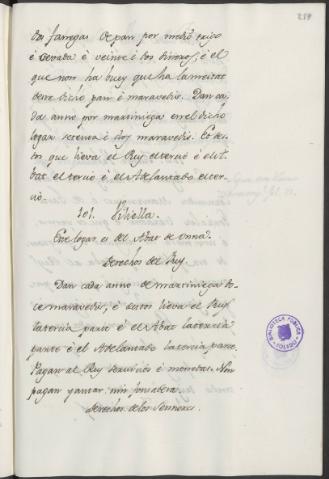 259
dos fanegas de pan por medio trigo
é cevada é veinte é dos dineros, é el
que non ha buey que ha la meitat
deste dicho pan é maravedis. Dan ca-
da anno por martiniega en el dicho
logar setenta é dos maravedis. E des-
tos que lieva el Rey el tercio é el A-
bat el tercio é el Adelantado el ter-
cio.
101. Tihella.
Este logar es del Abat de Onna.
Derechos del Rey.
Dan cada anno de martiniega do-
ce maravedis, é destos lieva el Rey
la tercia parte é el Abat la tercia
parte é el Adelantado la tercia parte.
Pagan al Rey servicios é monedas. Non
pagan yantar, nin fonsadera.
Derechos de los Sennores.
BIBLIOTECA PUBLICA
TOLEDO